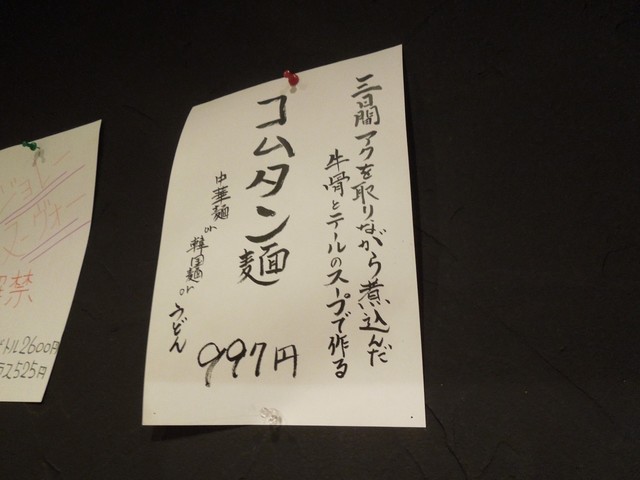 三日間アクを取りながら煮込んだ
牛骨とテールのスープで作る
コムタン麺
中華麺or韓国麺orうどん
997円
ボジョレー
ヌーヴォー
解禁
ボトル2600円
グラス525円